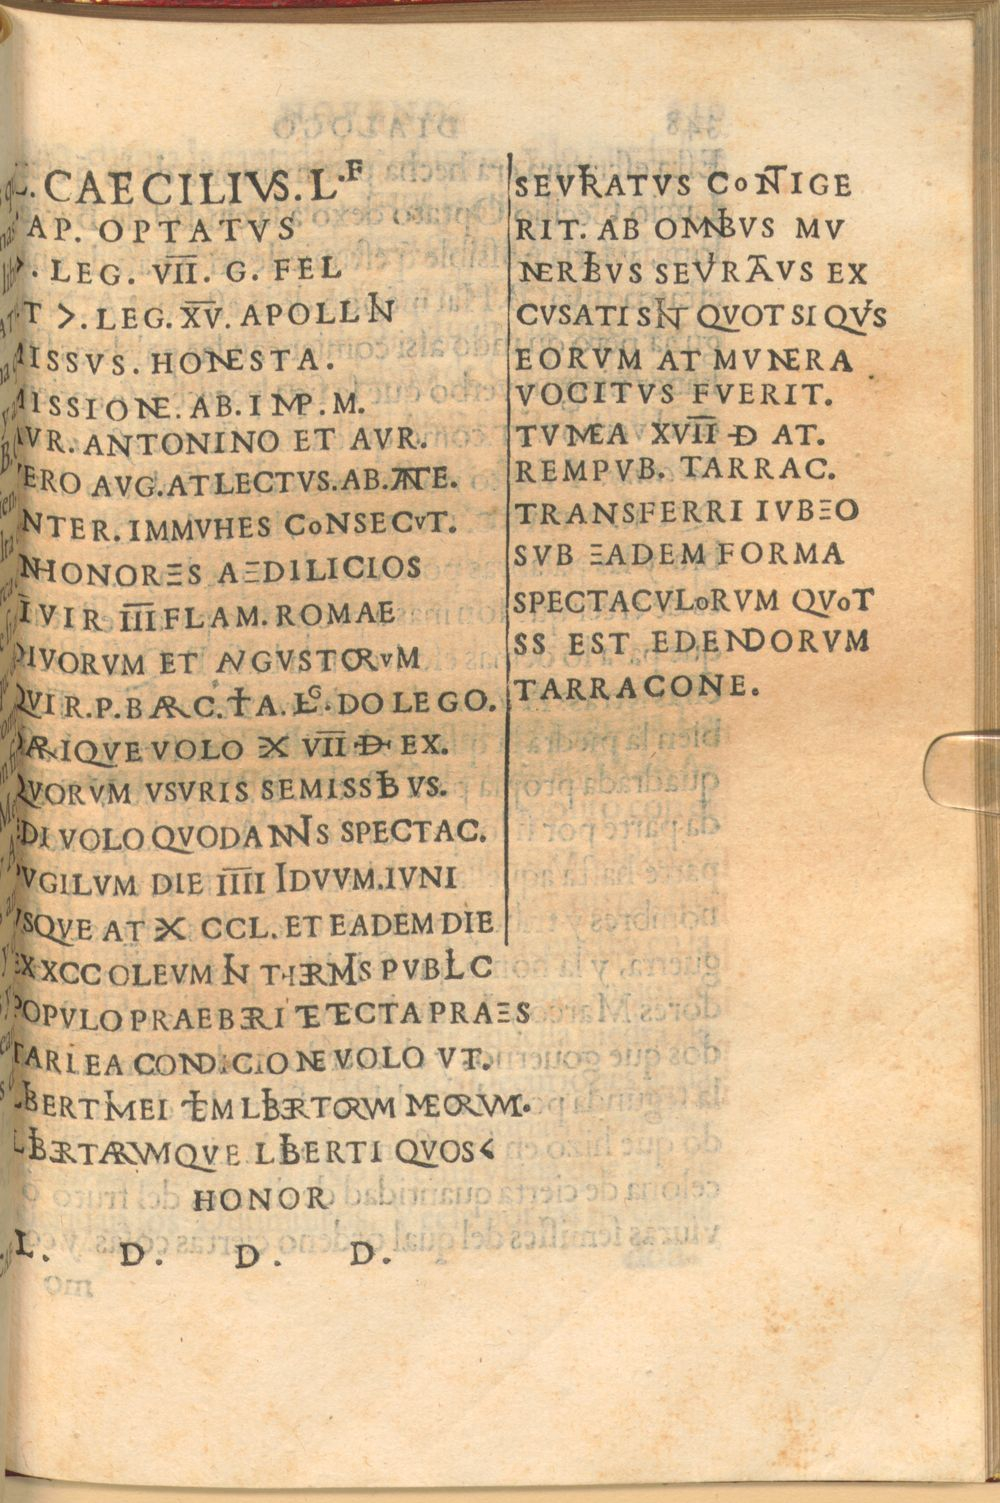 L. CAECILIVS. L.F
AP. OPTATVS
>. LEG. VII. G. FEL
T >. LEG. XV. APOLLIN
MISSVS. HONESTA.
MISSIONE. AB. IMP. M.
AVR. ANTONINO ET AVR.
VERO AVG. ATLECTVS. AB. ATE.
INTER. IMMVHES CONSECVT.
IN HONORES AEDILICIOS
IIVIR III FLAM. ROMAE
DIVORVM ET AVGVSTORVM
QVI R. P. BARC. ITA. LEG. DO LEGO.
DARIQVE VOLO X VII D EX.
QVORVM VSVRIS SEMISSIBVS.
EDI VOLO QVODANNIS SPECTAC.
PVGILVM DIE IIII IDVVM. IVNI
VSQVE AT X CCL. ET EADEM DIE
EX XCC OLEVM IN THERMIS PVBLIC
POPVLO PRAEBERI ET ECTA PRAES
TARI EA CONDICIONE VOLO VT.
LIBERTI MEI ITEM LIBERTORVM MEORVM.
LIBERTARVMQVE LIBERTI QVOS <
HONOR
L. D. D. D.
SEVIRATVS CONTIGE
RIT. AB OMNIBVS MV
NERIBVS SEVIRATVS EX
CVSATI SINT QVOT SI QVIS
EORVM AT MVNERA
VOCITVS FVERIT.
TVM EA XVII D AT.
REMPVB. TARRAC.
TRANSFERRI IVBEO
SVB EADEM FORMA
SPECTACVLORVM QVOT
SS EST EDENDORVM
TARRACONE.